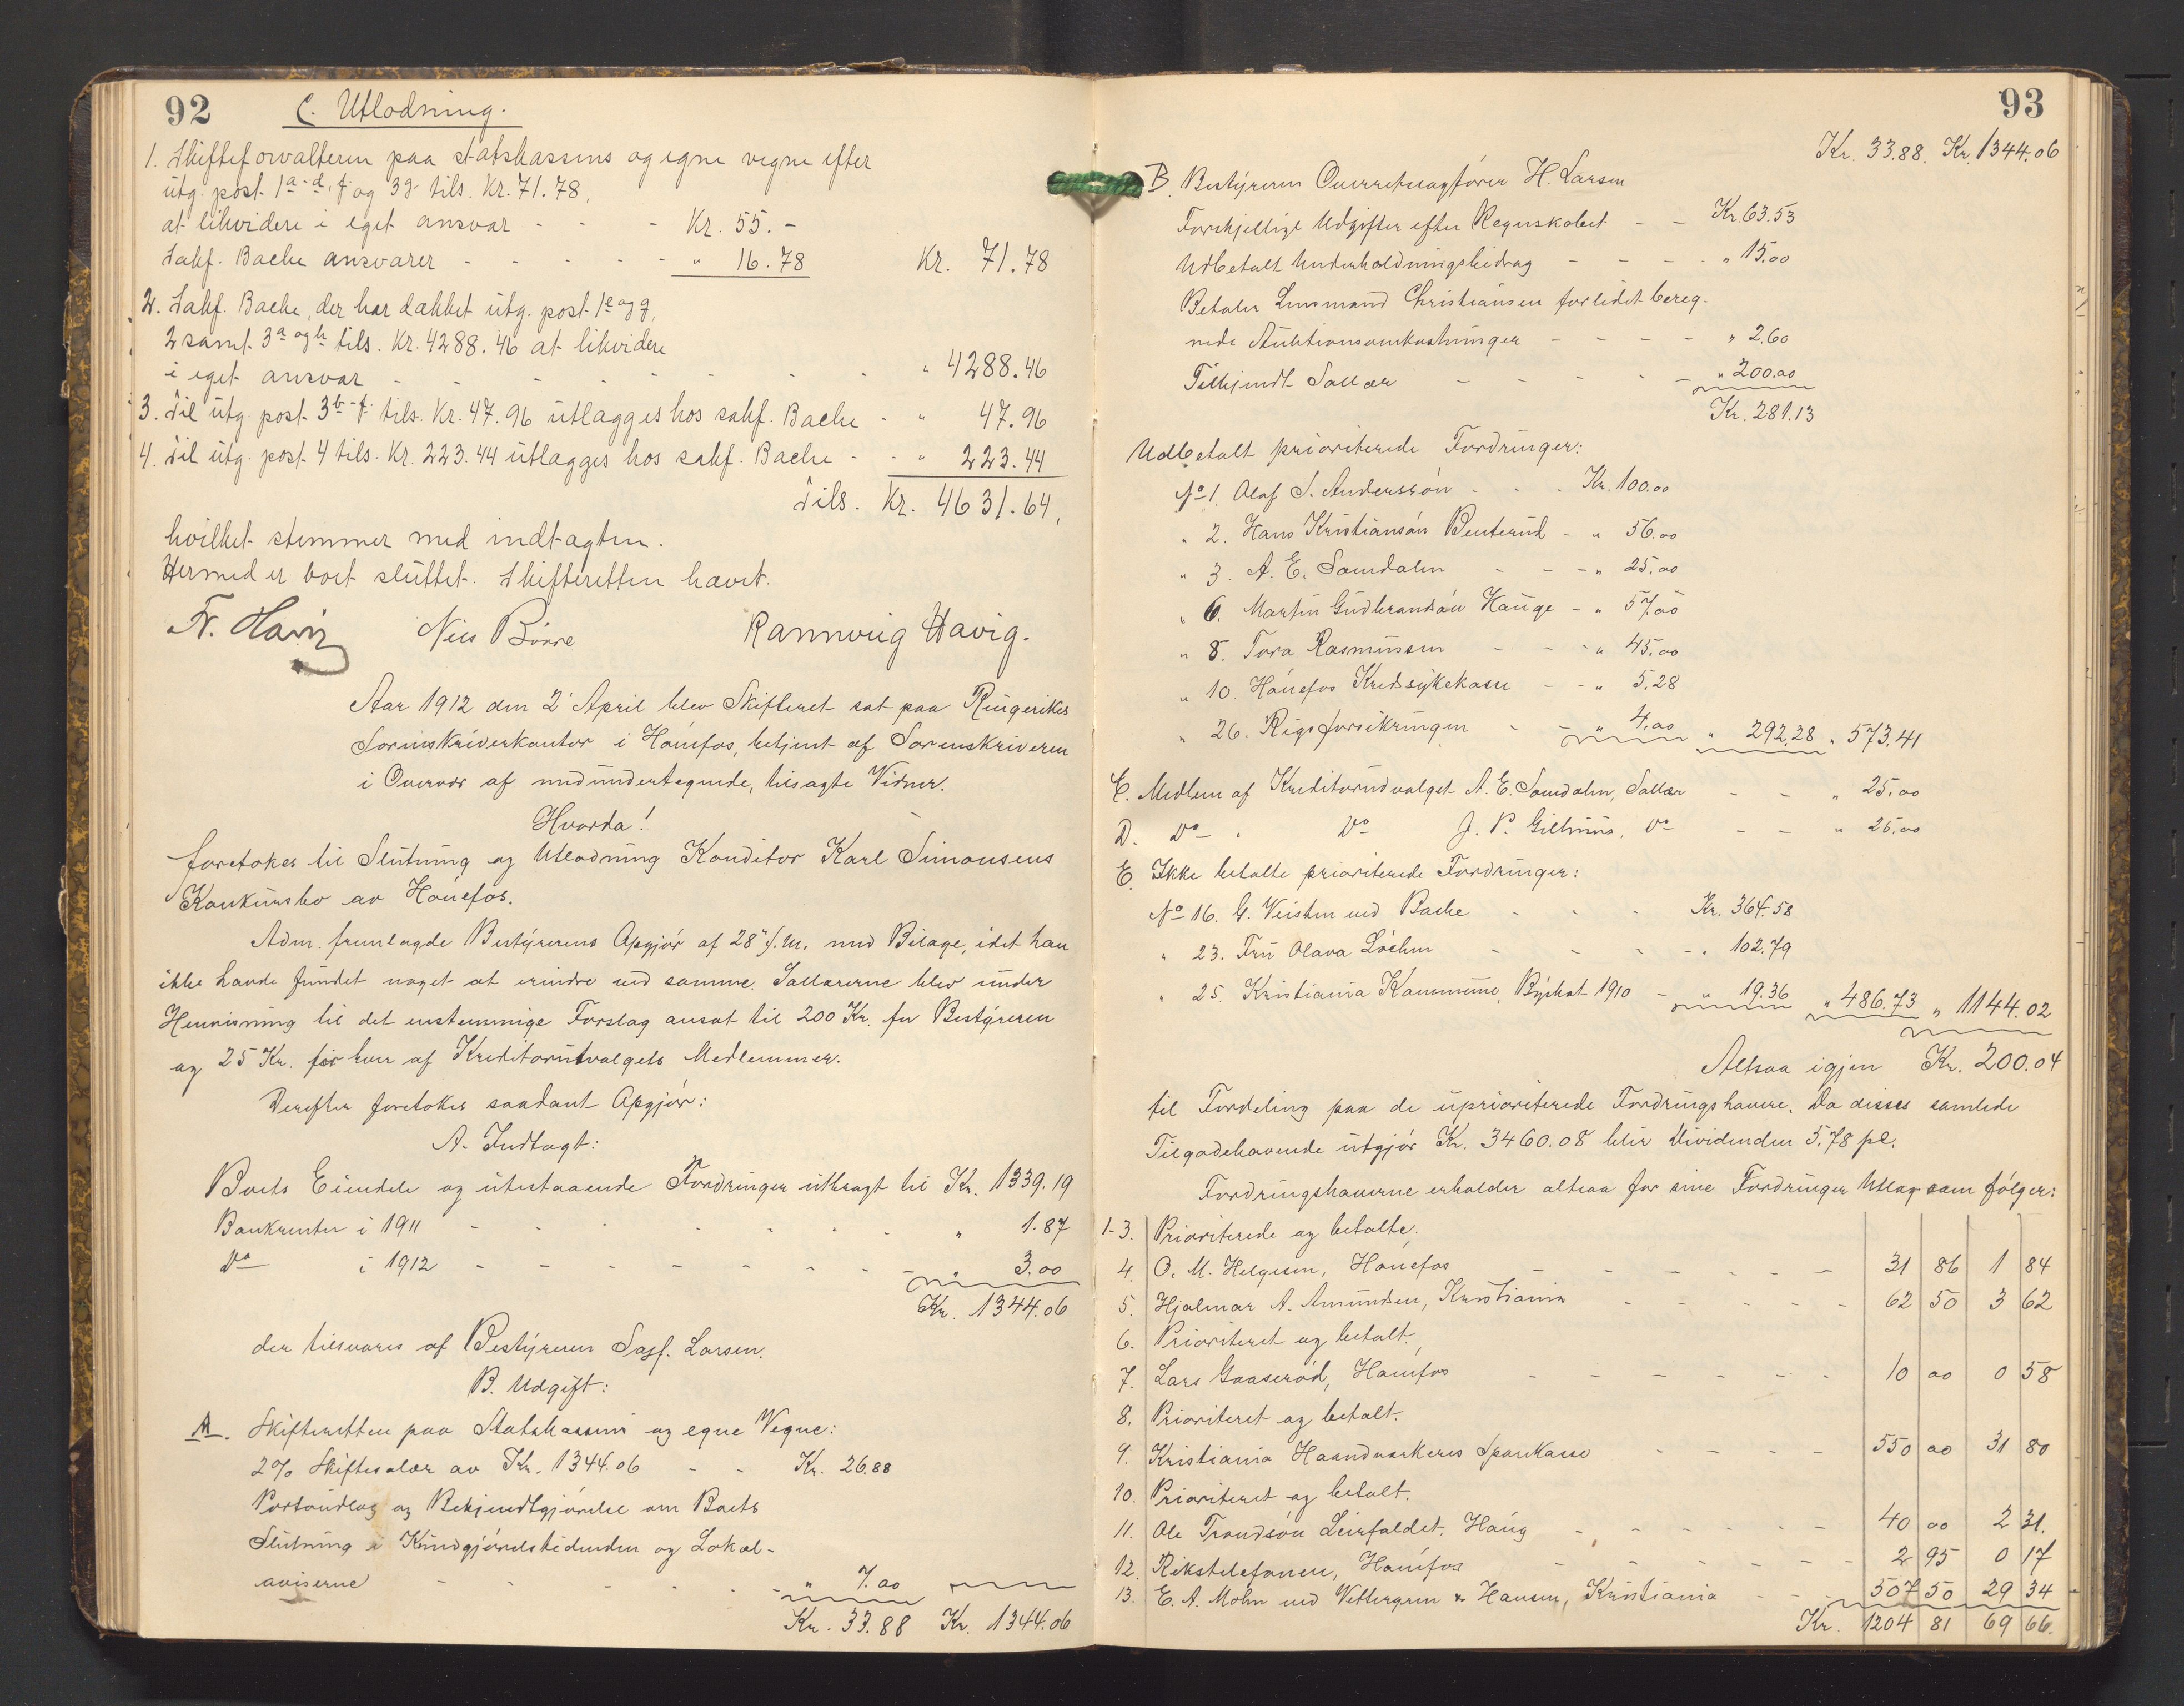 92
C. Utlodning.
1. Skifteforvalteren paa statskassens og egne vegne efter
utg. post. 1 a-d, f og 3g tils. Kr. 71.78,
at likvidere i eget ansvar - - - Kr. 55.-
Sakf. Bache ansvarer - - - - - " 16.78 Kr. 71.78
2. Sakf. Bache, der har dækket utg. post. 1 e og g,
2 samt 3 a og h tils. Kr. 4288.46 at likvidere
i eget ansvar - - - - - - - - " 4288.46
3. Til utg. post. 3 b-f tils. Kr. 47.96 utlægges hos sakf. Bache - " 47.96
4. Til utg. post 4 tils. Kr. 223.44 utlægges hos sakf. Bache - - " 223.44
Tils. Kr. 4631.64,
hvilket stemmer med indtægten.
Hermed er boet sluttet. Skifteretten hævet.
Fr. Havig Nils Børre Rannveig Havig.
Aar 1912 den 2' April blev Skifteret sat paa Ringerikes
Sorenskriverkontor i Hønefos, betjent af Sorenskriveren
i Overvær af medundertegnede, tilsagte Vidner.
Hvorda!
foretokes til Slutning og Utlodning Konditor Karl Simonsens
Konkursbo av Hønefos.
Adm. fremlagde Bestyrerens Opgjør af 28" f.M. med Bilage, idet han
ikke havde fundet noget at erindre ved samme. Sallærerne blev under
Henvisning til det enstemmige Forslag ansat til 200 Kr. for Bestyreren
og 25 Kr. for hver af Kreditorutvalgets Medlemmer.
Derefter foretokes saadant Opgjør:
A. Indtægt:
Boets Eiendele og utestaaende Fordringer utbragt til Kr. 1339.19
Bankrenter i 1911 - - - - - - - " 1.87
Do i 1912 - - - - - - - - " 3.00
Kr. 1344.06
der tilsvares af Bestyreren Sagf. Larsen.
B. Udgift:
A. Skifteretten paa Statskassens og egne Vegne:
2% Skiftesalær av Kr. 1344.06 - - Kr. 26.88
Portoudlæg og Bekjendtgjørelse om Boets
Slutning i Kundgjørelsestidenden og Lokal-
aviserne - - - - - " 7.00
Kr. 33.88 Kr. 1344.06
93
Kr. 33.88. Kr. 1344.06
B. Bestyreren Overretssagfører H. Larsen
Forskjellige Udgifter efter Regnskabet - - Kr. 63.53
Udbetalt Underholdningsbidrag - - - - " 15.00
Betaler Lensmand Christiansen forlidet bereg-
nede Auktionsomkostninger - - - - " 2.60
Tilkjendt Sallær - - - - - " 200.00
Kr. 281.13
Udbetalt prioriterede Fordringer:
No 1. Olaf S. Anderssøn - - - Kr. 100.00
" 2. Hans Kristiansøn Benterud - " 56.00
" 3. A. E. Somdalen - - - " 25.00
" 6. Martin Gudbrandsøn Hauge - " 57.00
" 8. Tora Rasmussen - - - " 45.00
" 10. Hønefos Kredssykekasse - - " 5.28
" 26. Rigsforsikringen - - " 4.00 " 292.28 " 573.41
C. Medlem af Kreditorudvalget A. E. Somdalen, Sallær - - " 25.00
D. Do " Do J. P. Gillenius, Do - - " 25.00
E. Ikke betalte prioriterede Fordringer:
No 16. G. Weisten ved Bache - - - Kr. 364.58
" 23. Fru Olava Løehen - - - - " 102.79
" 25. Kristiania Kommune, Byskat 1910 - " 19.36 " 486.73 " 1144.02
Altsaa igjen Kr. 200.04
til Fordeling paa de uprioriterede Fordringshavere. Da disses samlede
Tilgodehavende utgjør Kr. 3460.08 blir Dividenden 5.78 pC.
Fordringshaverne erholder altsaa for sine Fordringer Utlæg som følger:
1-3. Prioriterede og betalte.
4. O. M. Helgesen, Hønefos - - - - - - 31 86 1 84
5. Hjalmar A. Amundsen, Kristiania - - - - - 62 50 3 62
6. Prioriteret og betalt.
7. Lars Gaaserød, Hønefos - - - - - - 10 00 0 58
8. Prioriteret og betalt.
9. Kristiania Haandverkeres Sparekasse - - - - 550 00 31 80
10. Prioriteret og betalt.
11. Ole Trondsøn Leirfaldet, Haug - - - - - 40 00 2 31.
12. Rikstelefonen, Hønefos - - - - - - 2 95 0 17
13. E. A. Mohn ved Wettergren & Hansen, Kristiania - - 507 50 29 34
Kr. 1204 81 69 66.